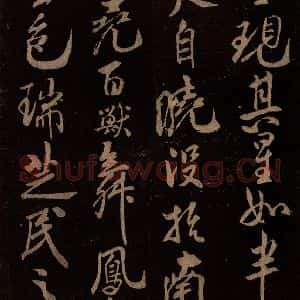 現其星如半
自曉没於南
堯百獸舞鳳
色瑞芝民之
shufawang.cn